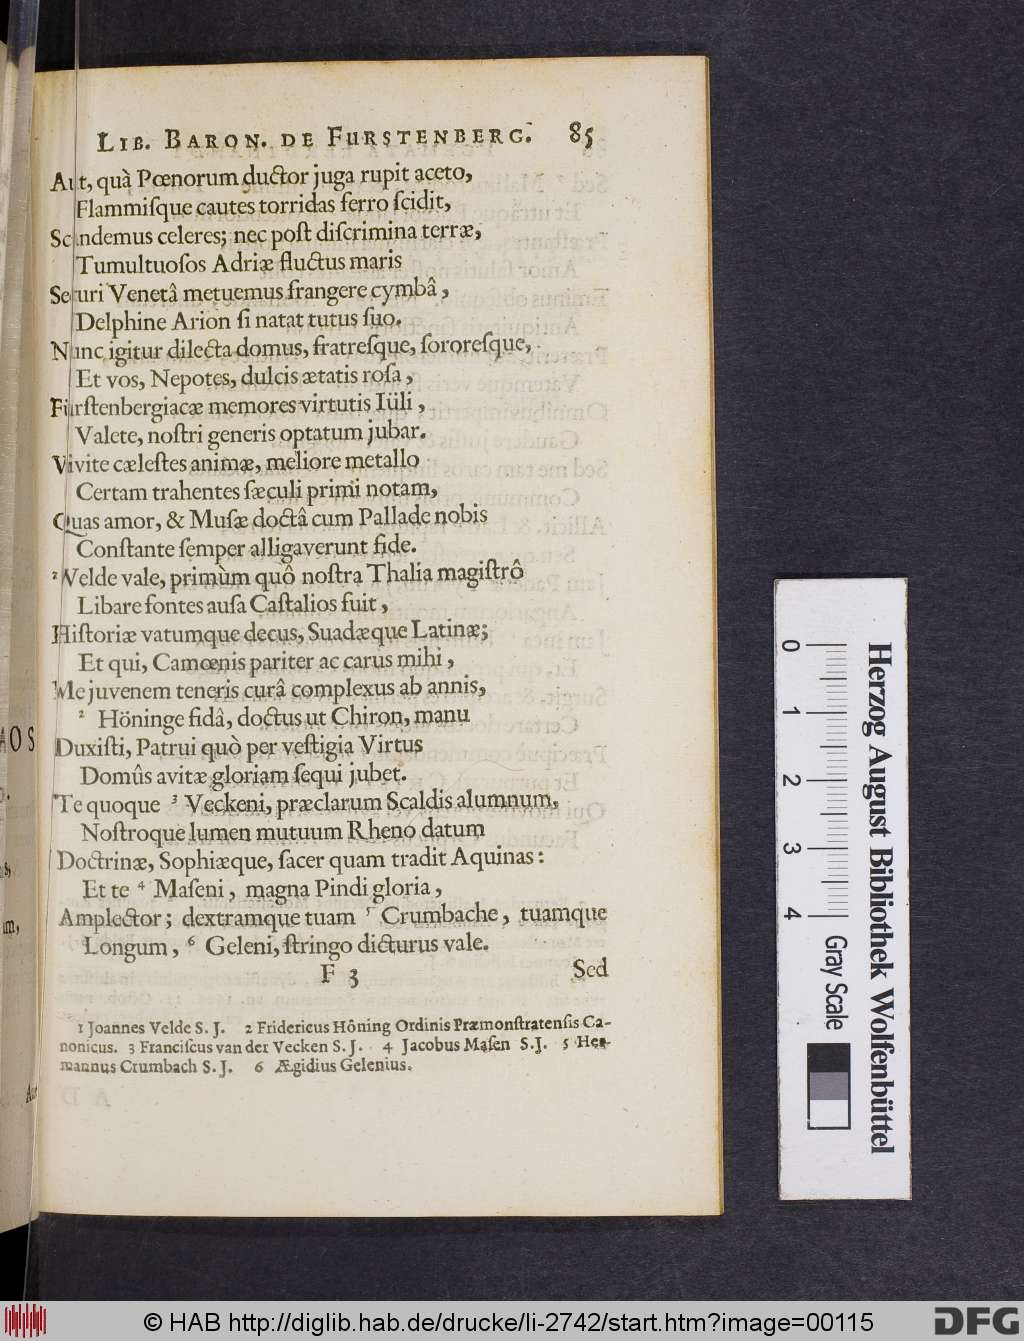 LIB. BARON. DE FURSTENBERG. 85
Aut, quà Pœnorum ductor juga rupit aceto,
Flammiſque cautes torridas ferro ſcidit,
Scandemus celeres; nec poſt diſcrimina terræ,
Tumultuoſos Adriæ fluctus maris
Securi Venetâ metuemus frangere cymbâ,
Delphine Arion ſi natat tutus ſuo.
Nunc igitur dilecta domus, fratreſque, ſororeſque,
Et vos, Nepotes, dulcis ætatis roſa,
Fürſtenbergiacæ memores virtutis Iüli,
Valete, noſtri generis optatum jubar.
Vivite cæleſtes animæ, meliore metallo
Certam trahentes ſæculi primi notam,
Quas amor, & Muſæ doctâ cum Pallade nobis
Conſtante ſemper alligaverunt fide.
² Velde vale, primùm quô noſtra Thalia magiſtrô
Libare fontes auſa Caſtalios fuit,
Hiſtoriæ vatumque decus, Suadæque Latinæ;
Et qui, Camœnis pariter ac carus mihi,
Me juvenem teneris curâ complexus ab annis,
² Höninge fidâ, doctus ut Chiron, manu
Duxiſti, Patrui quò per veſtigia Virtus
Domûs avitæ gloriam ſequi jubet.
Te quoque ³ Veckeni, præclarum Scaldis alumnum,
Noſtroque lumen mutuum Rheno datum
Doctrinæ, Sophiæque, ſacer quam tradit Aquinas:
Et te ⁴ Maſeni, magna Pindi gloria,
Amplector; dextramque tuam ⁵ Crumbache, tuamque
Longum, ⁶ Geleni, ſtringo dicturus vale.
F 3 Sed
1 Joannes Velde S. J. 2 Fridericus Hôning Ordinis Præmonſtratenſis Ca-
nonicus. 3 Franciſcus van der Vecken S. J. 4 Jacobus Maſen S.J. 5 Her-
mannus Crumbach S. J. 6 Ægidius Gelenius.
0 1 2 3 4
Herzog August Bibliothek Wolfenbüttel
Gray Scale
© HAB http://diglib.hab.de/drucke/li-2742/start.htm?image=00115
DFG